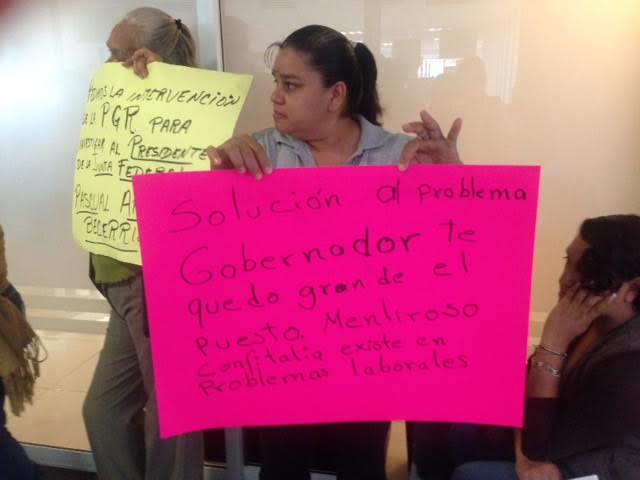 LA INTERVENCIÓN
DE LA PGR PARA
INVESTIGAR AL PRESIDENTE
DE LA JUNTA FEDERAL
PASQUAL
BECERRI
Solución al problema
Gobernador te
quedo grande el
puesto. Mentiroso
Confitalia existe en
Problemas laborales